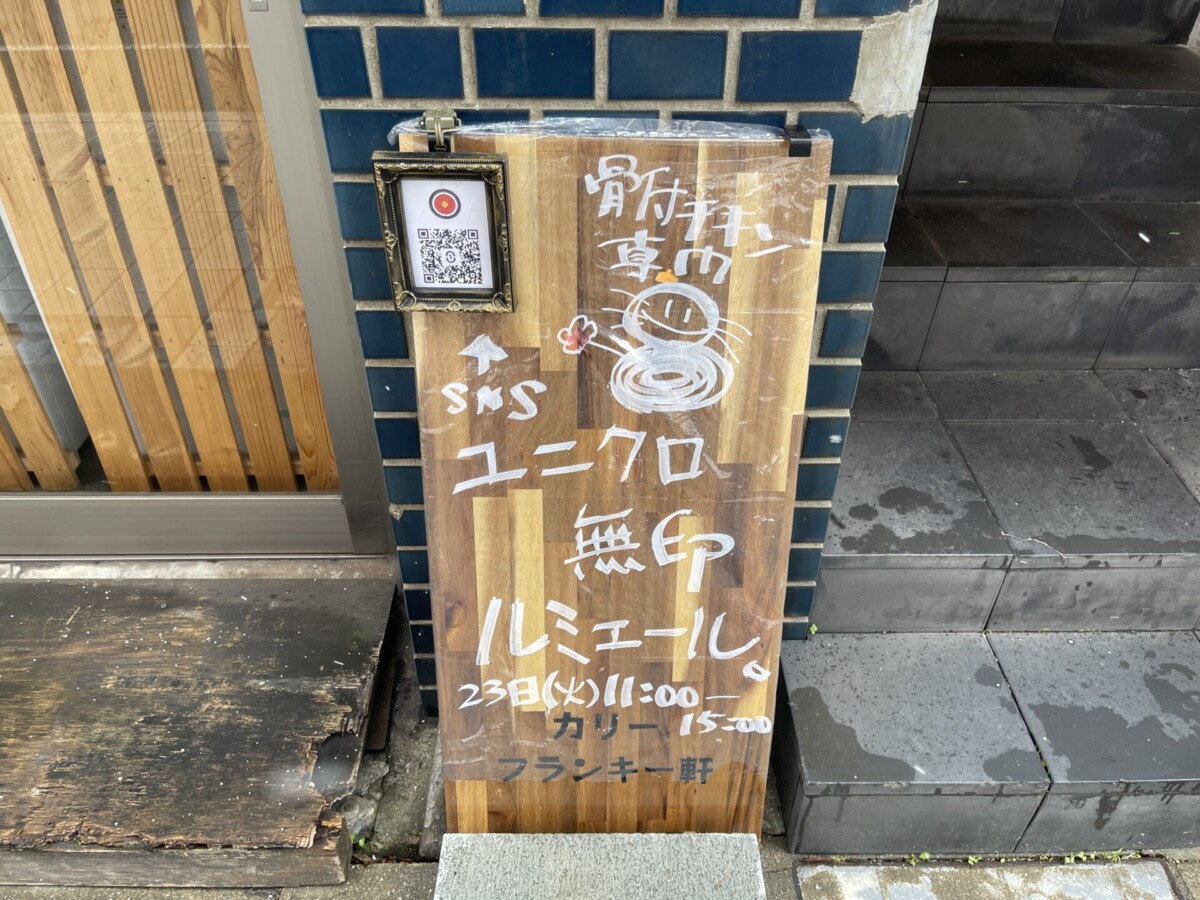 骨付チキン
専門
SNS
ユニクロ
無印
ルミエール。
23日(火)11:00ー
15:00
カリー
フランキー軒